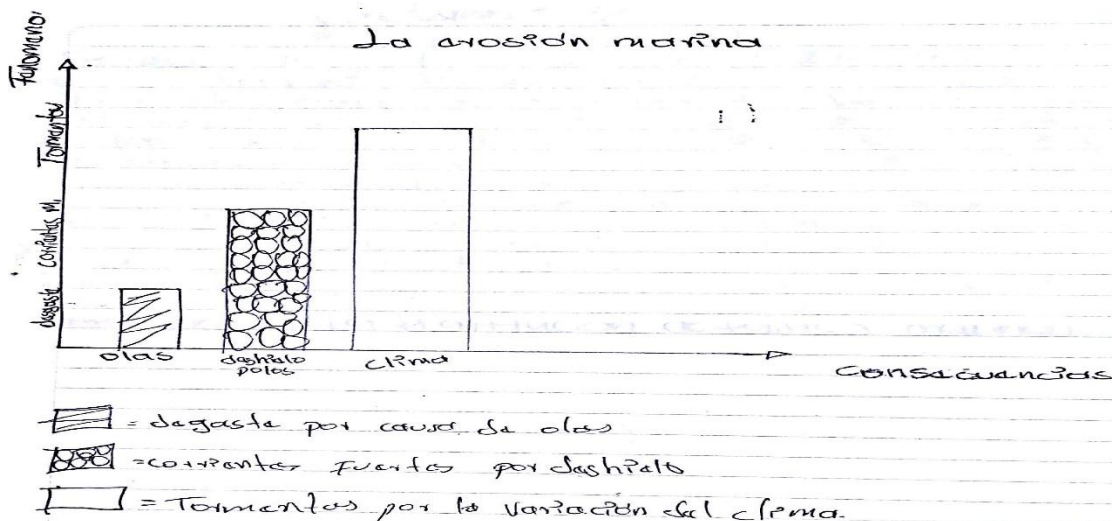 La erosión marina
Fenomeno
Tormentas
corrientes m.
desgaste
olas
deshielo
polos
clima
consecuencias
= degaste por causa de olas
= corrientes fuertes por deshielo
= Tormentas por la variación del clima.